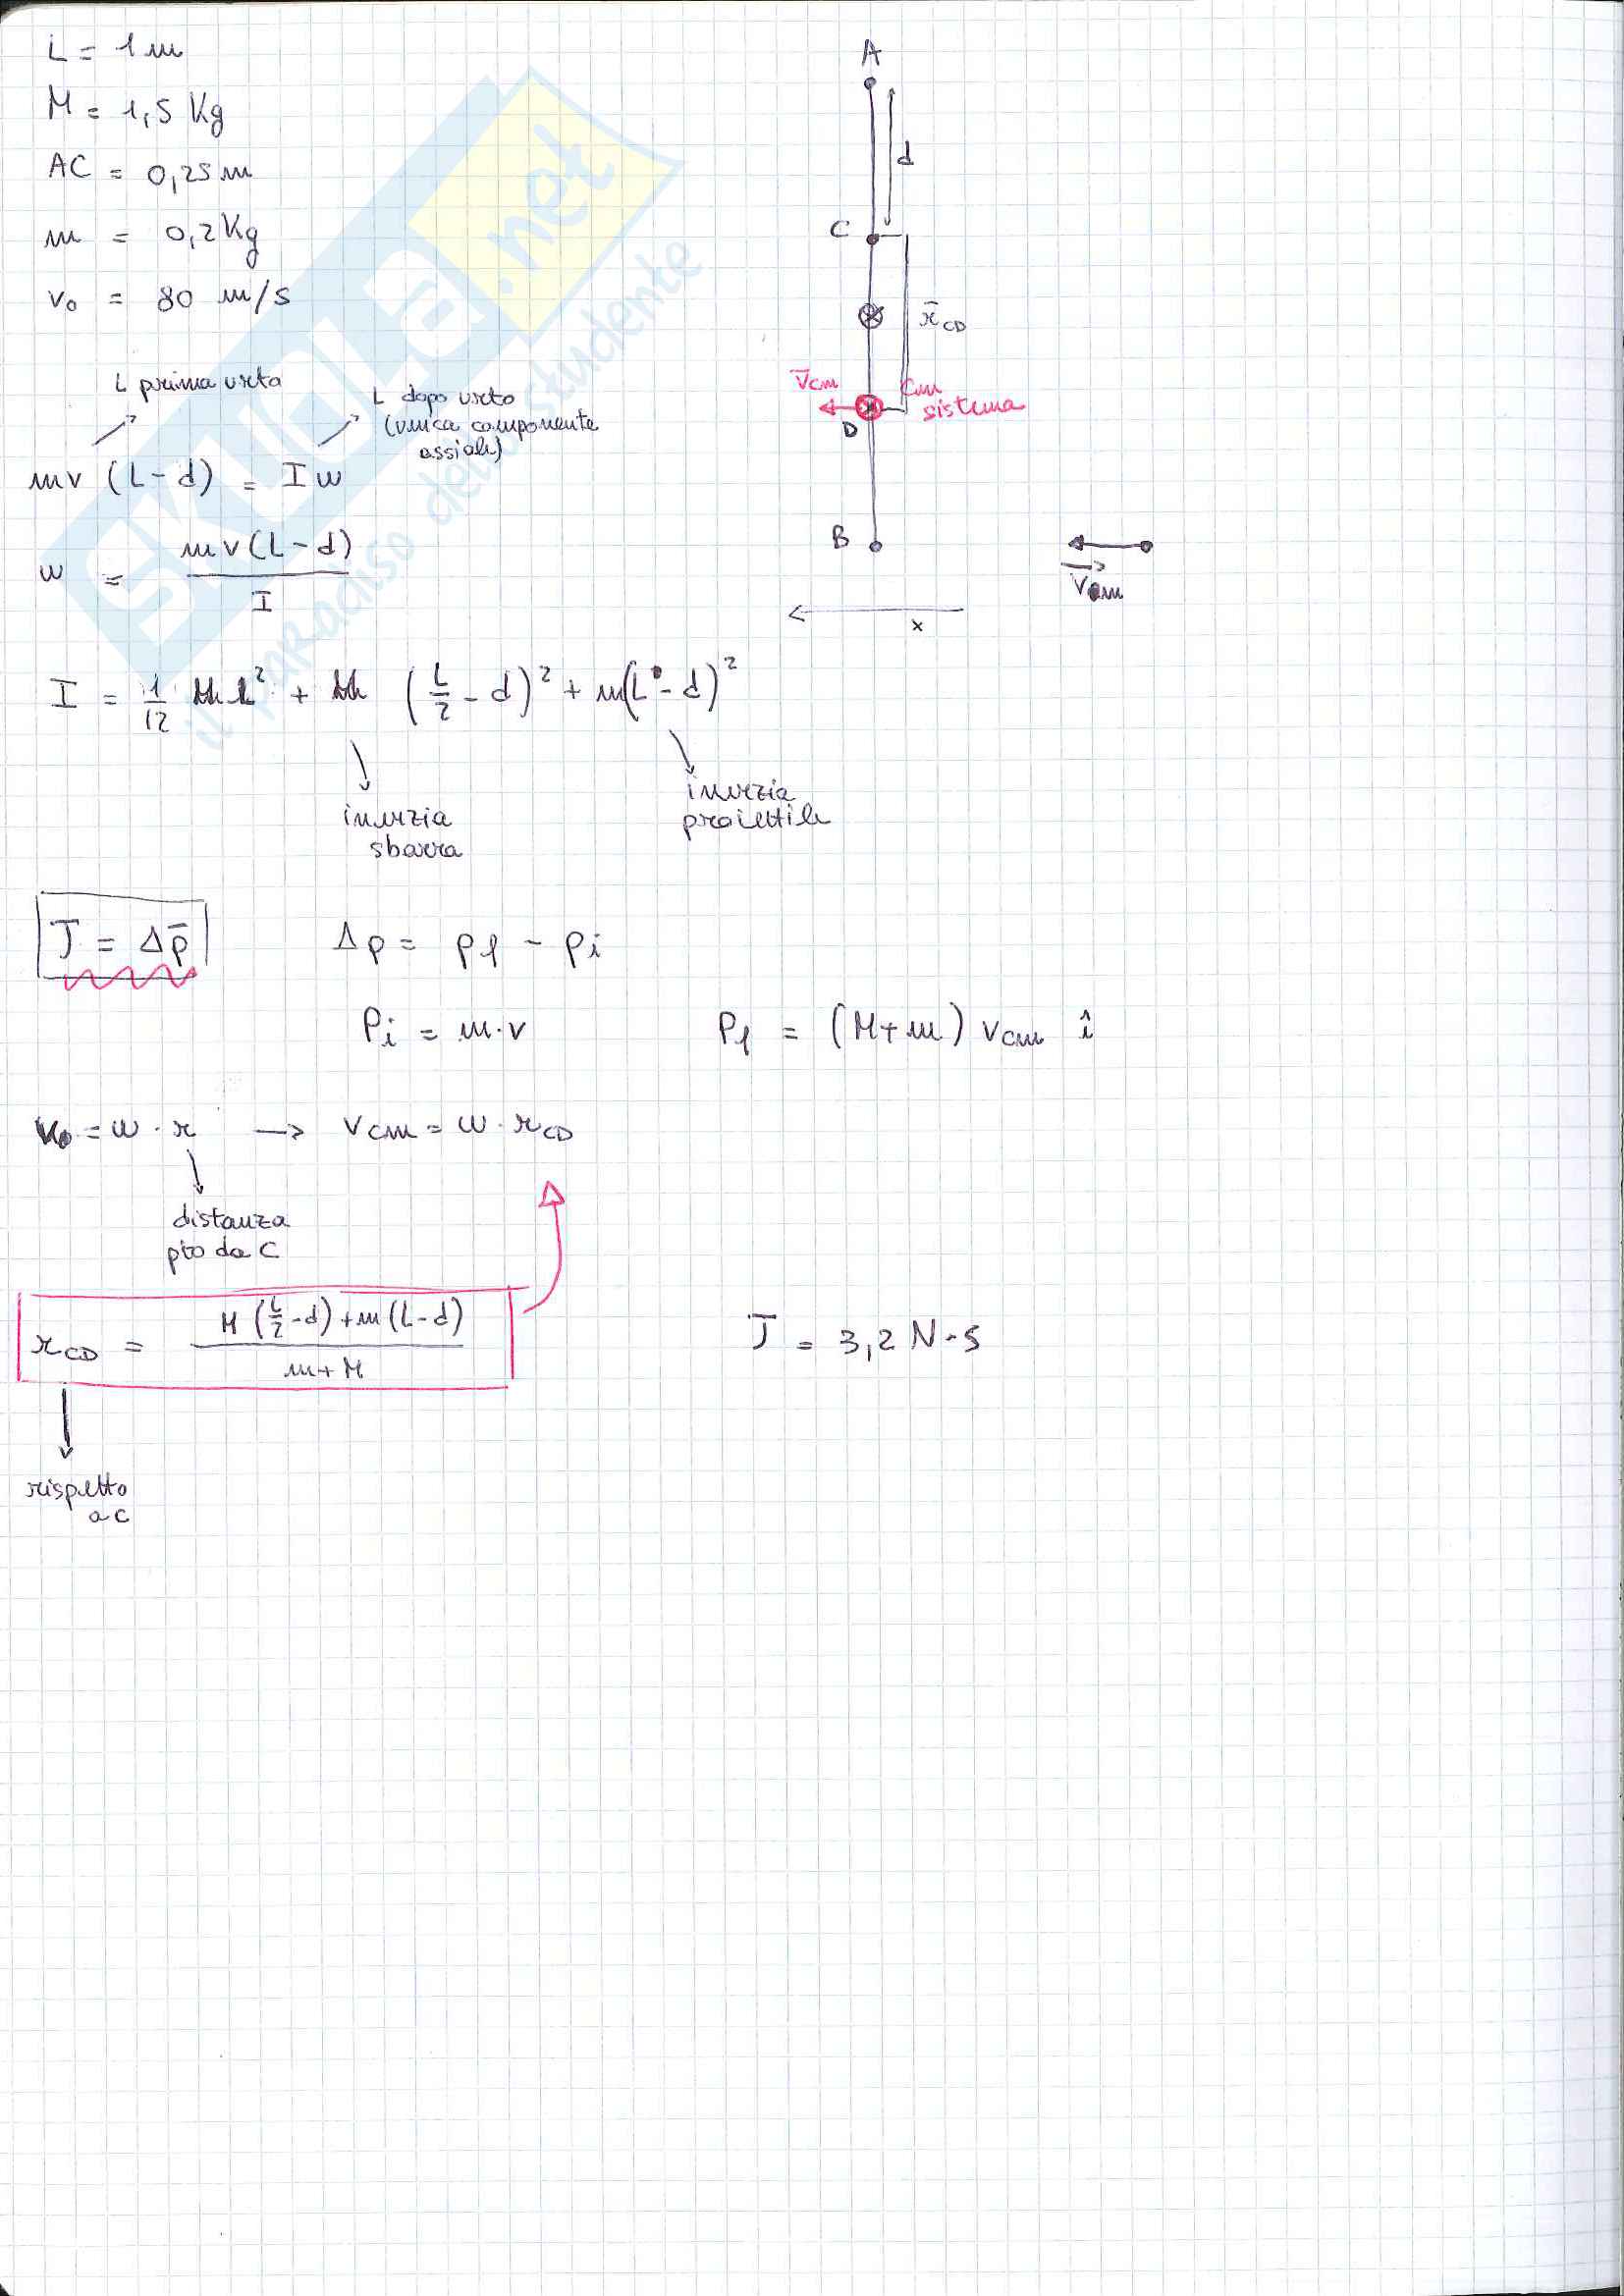 L = 1 m
M = 1,5 Kg
AC = 0,25 m
m = 0,2 Kg
v₀ = 80 m/s
A
d
C
r̄_CD
v̄cm
cm
sistema
D
B
Vcm
x
L prima urto
L dopo urto
(unica componente
assiale)
mv (L-d) = I w
w = mv(L-d) / I
I = 1/12 M L² + M (L/2 - d)² + m(L - d)²
inerzia
sbarra
inerzia
proiettile
J = Δp̄
Δp = pf - pi
Pi = m·v
Pf = (M+m) vcm î
= w · r → vcm = w · r_CD
distanza
pto da C
r_CD = M (L/2 - d) + m (L-d) / m+M
J = 3,2 N·s
rispetto
a C
SKUOLA.net
il paradiso dello studente